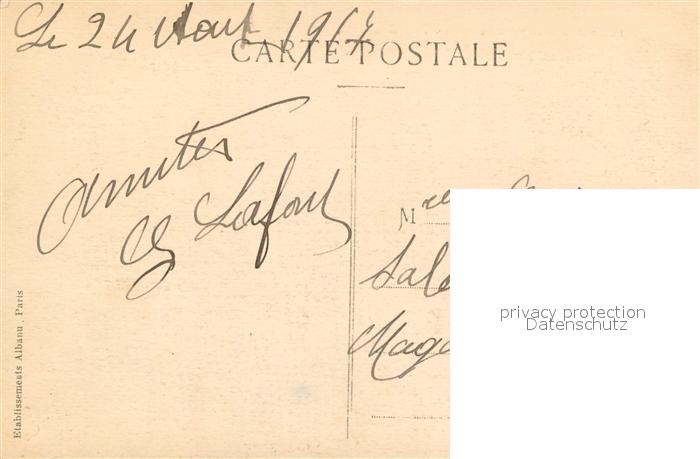 Le 24 Août 1917
CARTE POSTALE
Amitiés
Ch Lafont
M
Etablissements Albanu, Paris
privacy protection
Datenschutz